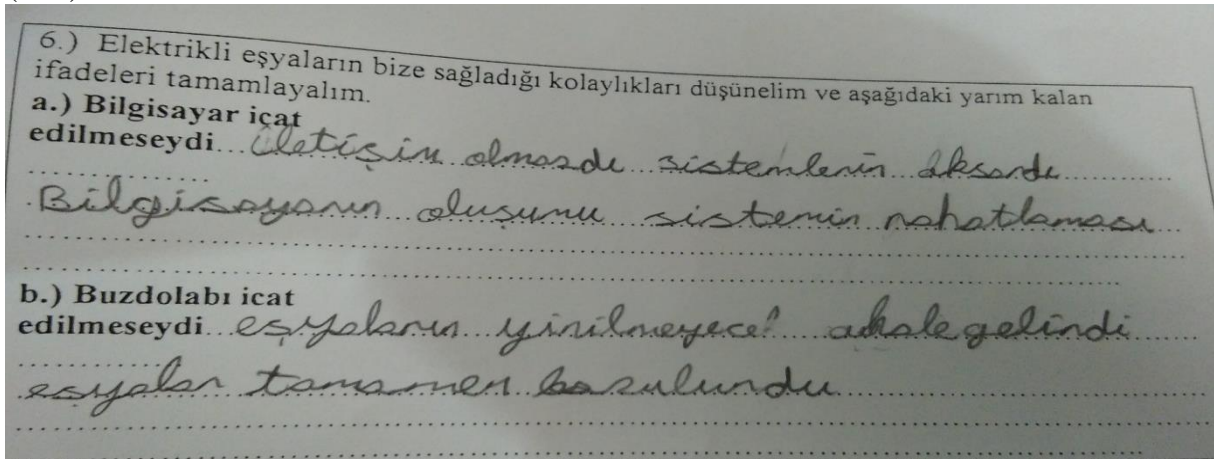 6.) Elektrikli eşyaların bize sağladığı kolaylıkları düşünelim ve aşağıdaki yarım kalan
ifadeleri tamamlayalım.
a.) Bilgisayar içat
edilmeseydi...iletişim olmazdı sistemlerin aksardı
Bilgisayarın oluşumu sistemin rahatlaması
b.) Buzdolabı icat
edilmeseydi...eşyaların yinilmeyecek gelindi
eşyalar tamamen bozulurdu